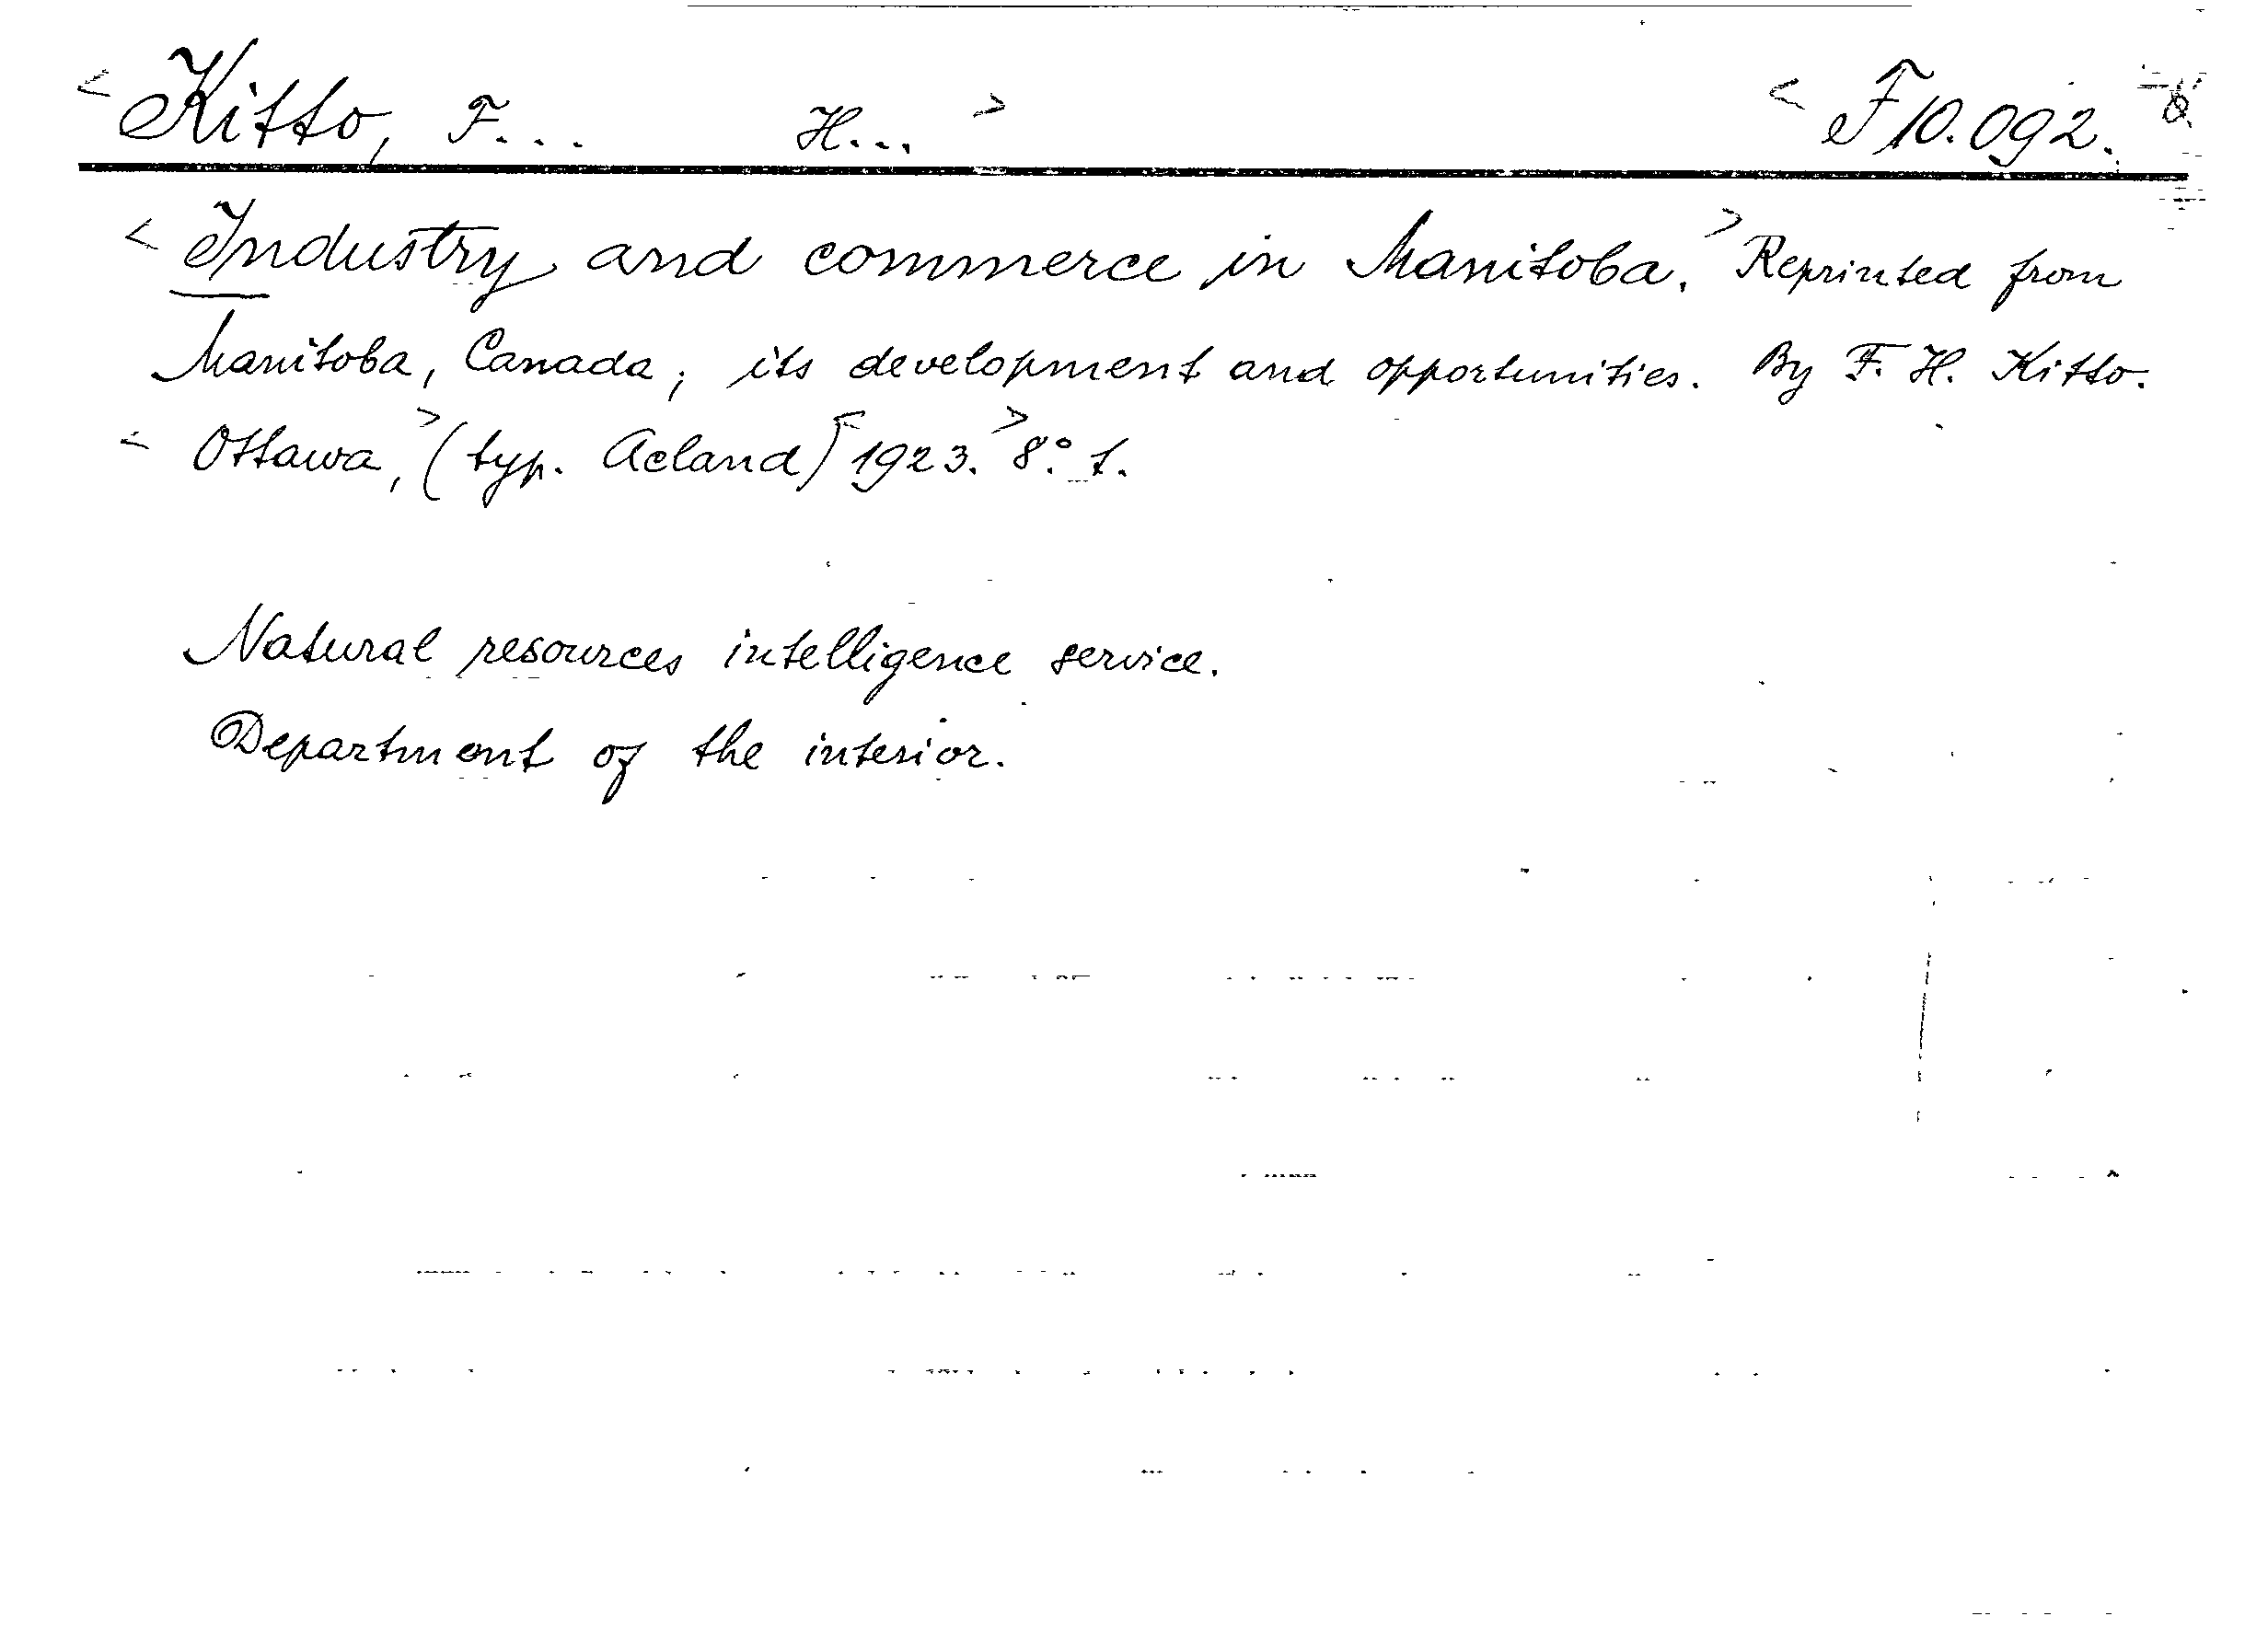 < Kitto, F... H... > < F 10.092.
< Industry and commerce in Manitoba. > Reprinted from
Manitoba, Canada; its development and opportunities. By F. H. Kitto.
< Ottawa, > (typ. Acland) < 1923. > 8.° t.
Natural resources intelligence service.
Department of the interior.